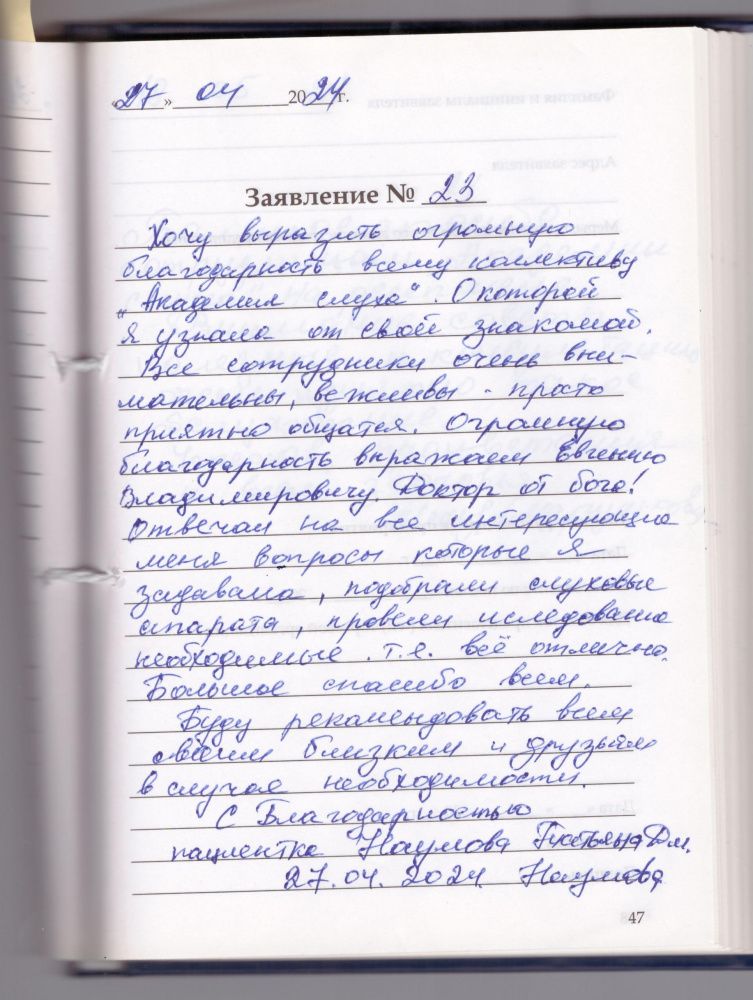 «27» 04 2024г.
Заявление № 23
Хочу выразить огромную
благодарность всему коллективу
"Академия слуха". О которой
я узнала от своей знакомой.
Все сотрудники очень вни-
мательны, вежливы - просто
приятно общатся. Огромную
благодарность выражаем Евгению
Владимировичу. Доктор от бога!
Отвечал на все интересующие
меня вопросы которые я
задавала, подобрали слуховые
апарата, провели иследование
необходимые т.е. всё отлично.
Большое спасибо всем.
Буду рекамендовать всем
своим близким и друзьям
в случае необходимости.
С Благодарностью
пациентка Наумова Татьяна Дм.
27.04.2024 Наумова
47